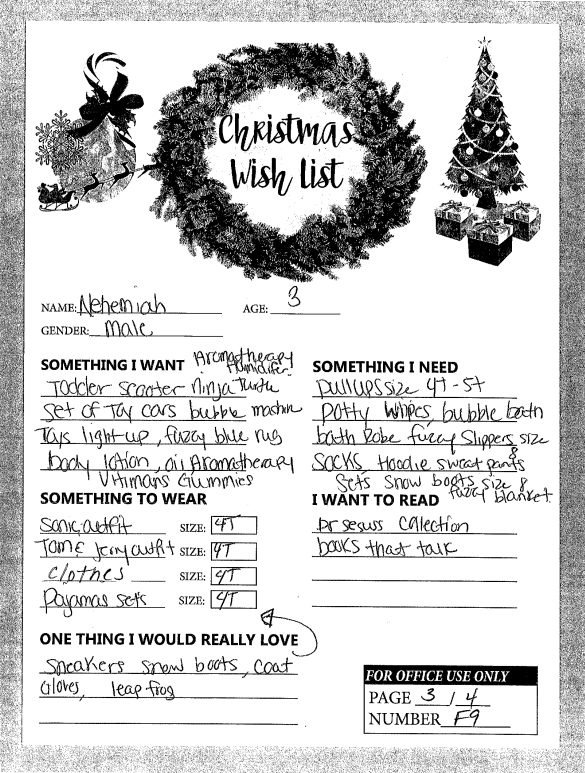 Christmas
Wish List
NAME: Nehemiah AGE: 3
GENDER: Male
SOMETHING I WANT Aromatherapy
Humidifier
Toddler scooter Ninja Turtle
set of Toy cars bubble machine
Toys light-up, fuzzy blue rug
body lotion, oil Aromatherapy
Vitimans Gummies
SOMETHING I NEED
pullups size 4T-5T
potty whipes, bubble bath
bath Robe fuzzy Slippers size 8
SOCKS, Hoodie sweat pants
Sets Snow boots size 8
fuzzy blanket
SOMETHING TO WEAR
Sonic outfit SIZE: 4T
Tom & Jerry outfit SIZE: 4T
clothes SIZE: 4T
Pajamas sets SIZE: 4T
I WANT TO READ
Dr seuss Collection
books that talk
ONE THING I WOULD REALLY LOVE
Sneakers snow boots, coat
Gloves, leap frog
FOR OFFICE USE ONLY
PAGE 3 / 4
NUMBER F9